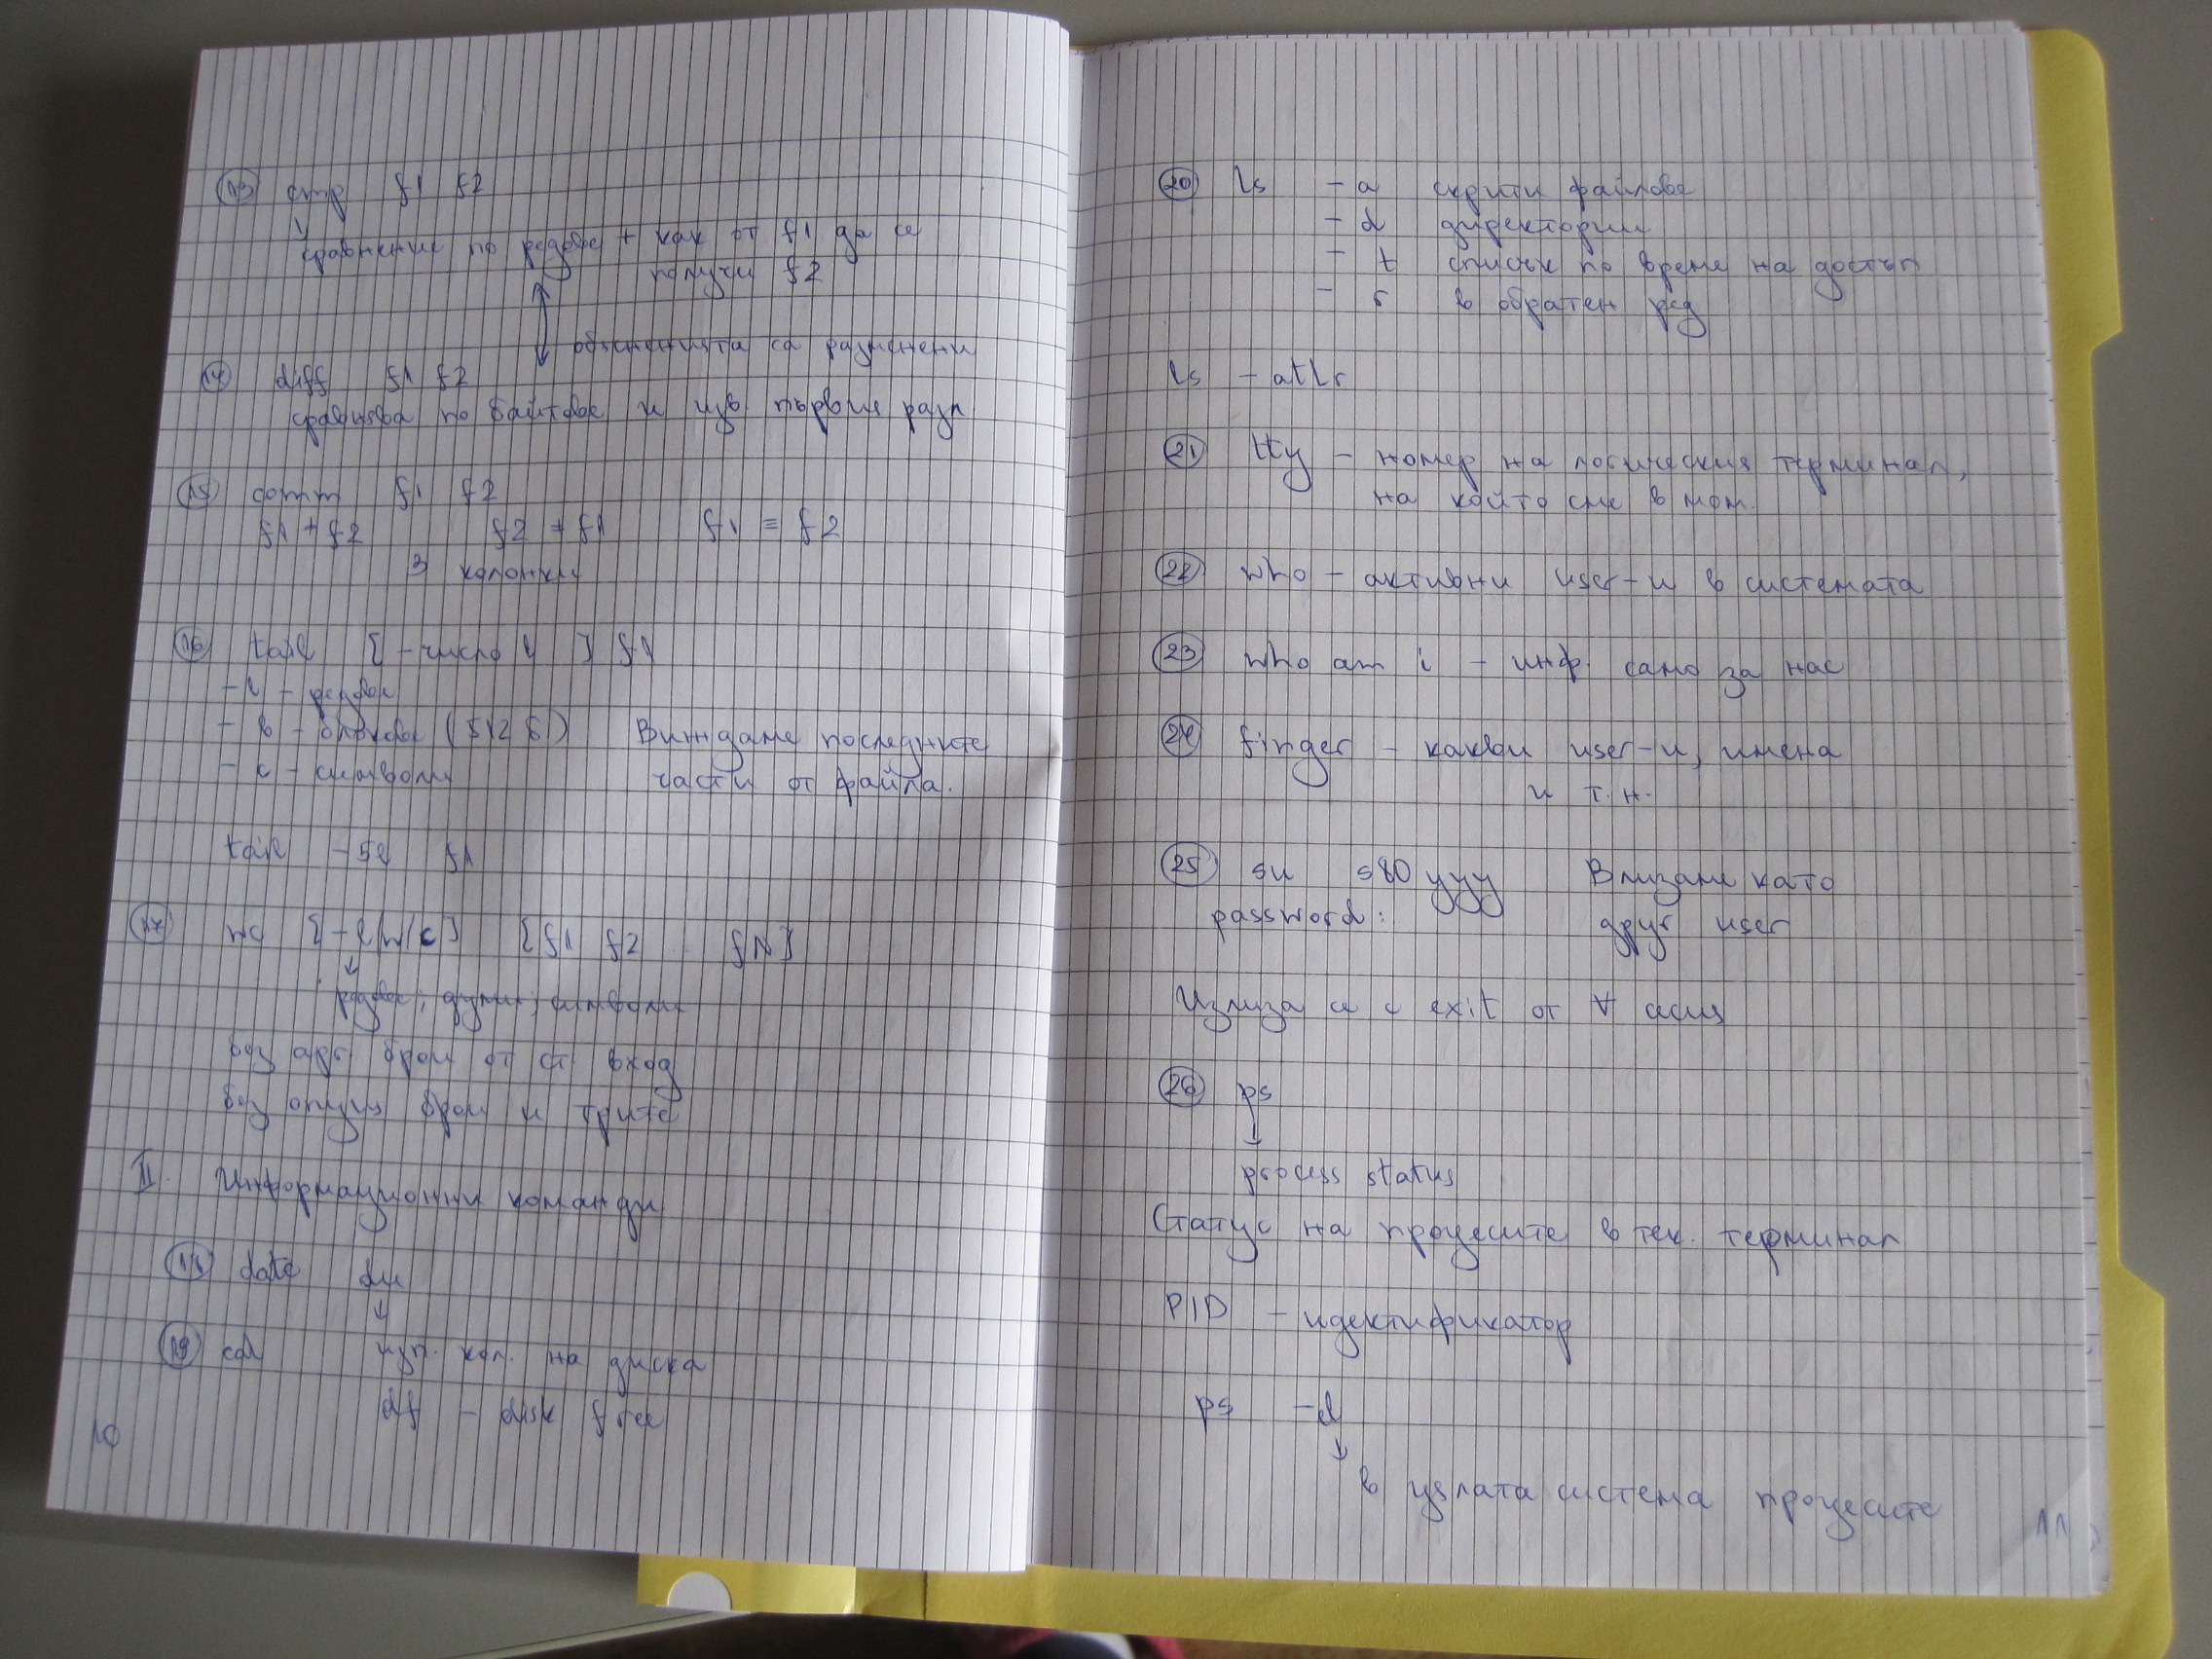 13 cmp f1 f2
сравнение по редове + как от f1 да се
получи f2
обясненията са разменени
14 diff f1 f2
сравнява по байтове и изв. първия разл
15 comm f1 f2
f1 ≠ f2 f2 ≠ f1 f1 = f2
3 колонки
16 tail [-число l ] f1
- l - редове
- b - блокове (512 б) Виждаме последните
- c - символи части от файла.
tail -5l f1
17 wc [-l|w|c] [f1 f2 ... fN]
редове; думи; символи
без арг. брои от ст. вход
без опция брои и трите
II. Информационни команди
18 date du
19 cal изп. кол. на диска
df - disk free
10
20 ls - a скрити файлове
- d директории
- t списък по време на достъп
- r в обратен ред
ls - atlr
21 tty - номер на логическия терминал,
на който сме в мом.
22 who - активни user-и в системата
23 who am i - инф. само за нас
24 finger - какви user-и, имена
и т.н.
25 su s80yyy Влизаме като
password: друг user
Излиза се с exit от ∀ сесия
26 ps
process status
Статус на процесите в тек. терминал
PID - идектификатор
ps -d
в цялата система процесите
11